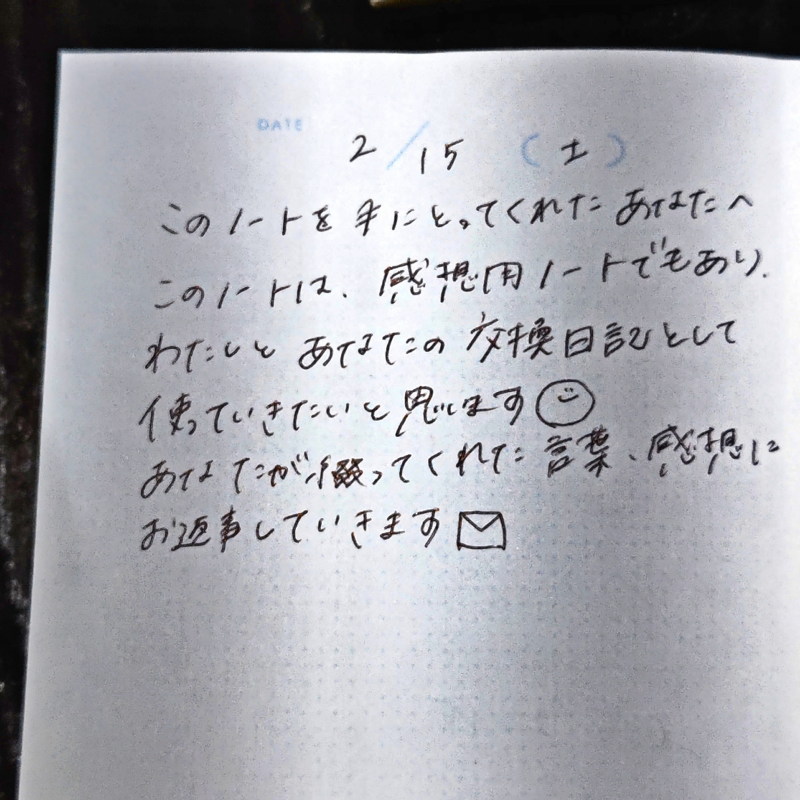 DATE 2/15 (土)
このノートを手にとってくれたあなたへ
このノートは、感想用ノートでもあり、
わたしとあなたの交換日記として
使っていきたいと思います
あなたが綴ってくれた言葉、感想に
お返事していきます